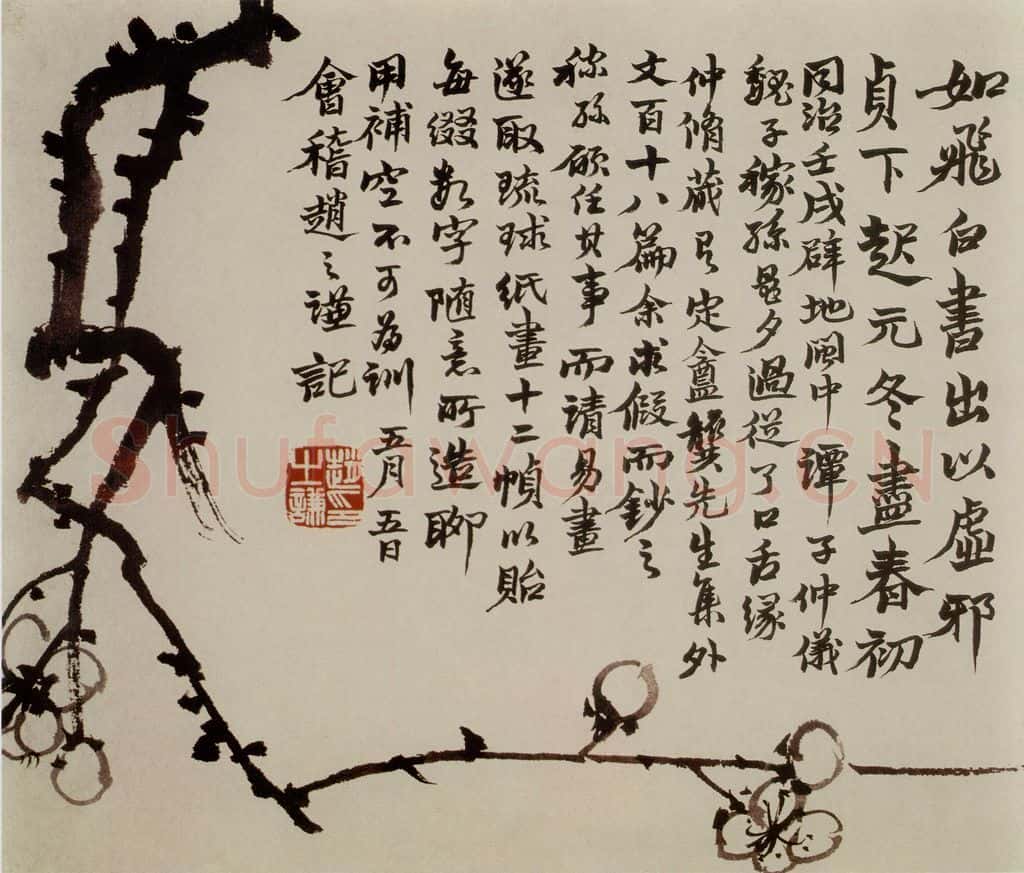 如飛白書出以虛邪
貞下起元冬盡春初
同治壬戌辟地閩中譚子仲儀
魏子稼孫晨夕過從了口舌緣
仲脩藏有定盦龔先生集外
文百十八篇余求假而鈔之
稼孫願任其事而請易畫
遂取琉球紙畫十二幀以貽
每綴數字隨意所造聊
用補空不可為訓 五月五日
會稽趙之謙記
Shufawang.cn